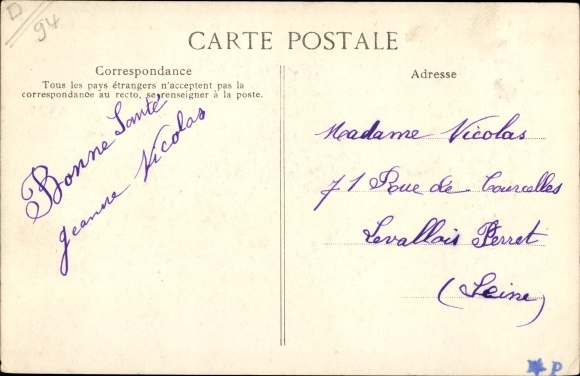 D
94
CARTE POSTALE
Correspondance
Tous les pays étrangers n'acceptent pas la
correspondance au recto, se renseigner à la poste.
Bonne Santé
Jeanne Nicolas
Adresse
Madame Nicolas
71 Rue de Courcelles
Levallois Perret
(Seine)
P